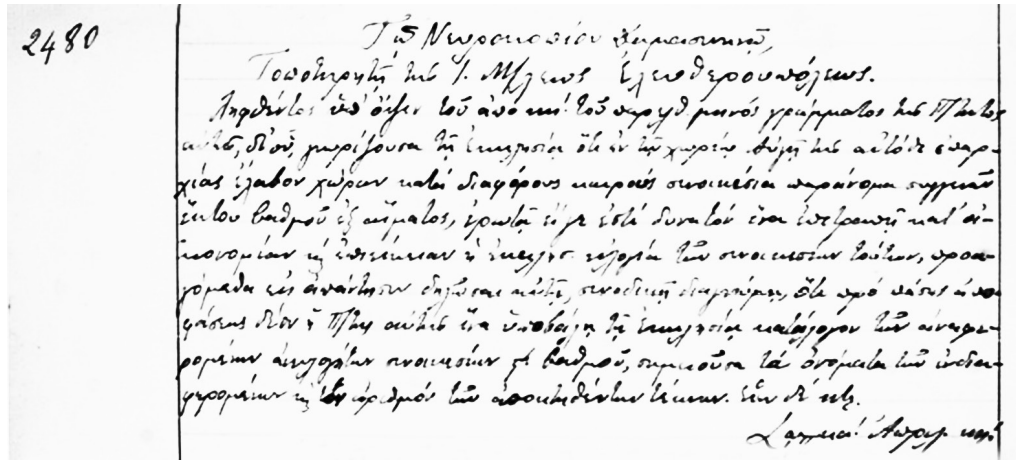 2480
Τῷ Νευροκοπίου Δαμασκηνῷ,
Τοποτηρητῇ τῆς Ἰ. Μ/λεως Ἐλευθερουπόλεως.
Ληφθέντος ὑπ' ὄψει τοῦ ἀπὸ κή τοῦ παρελθ. μηνὸς γράμματος τῆς Π/τητος
αὐτῆς, δι' οὗ, γνωρίζουσα τῇ ἐκκλησίᾳ ὅτι ἐν τῷ χωρίῳ τῆς αὐτόθι ἐπαρ-
χίας ἔλαβον χώραν κατὰ διαφόρους καιροὺς συνοικέσια παράνομα συγγενῶν
ἕκτου βαθμοῦ ἐξ αἵματος, ἐρωτᾷ εἴγε ἐστὶ δυνατὸν ἵνα ἐπιτραπῇ κατ' οἰ-
κονομίαν κ ἐπιείκειαν ἡ ἐκκλησ. εὐλογία τῶν συνοικεσίων τούτων, προα-
γόμεθα εἰς ἀπάντησιν δηλῶσαι αὐτῇ, συνοδικῇ διαγνώμῃ, ὅτι πρὸ πάσης ἀπο-
φάσεως δέον ἡ Π/της αὐτῆς ἵνα ὑποβάλῃ τῇ ἐκκλησίᾳ κατάλογον τῶν ἀναφε-
ρομένων ἀνευλογήτων συνοικεσίων ϛ' βαθμοῦ, σημειοῦσα τὰ ὀνόματα τῶν ἐνδια-
φερομένων κ τὸν ἀριθμὸν τῶν ἀποκτηθέντων τέκνων. Ἐῶν δὲ κτλ.
Ἀπριλ. κή